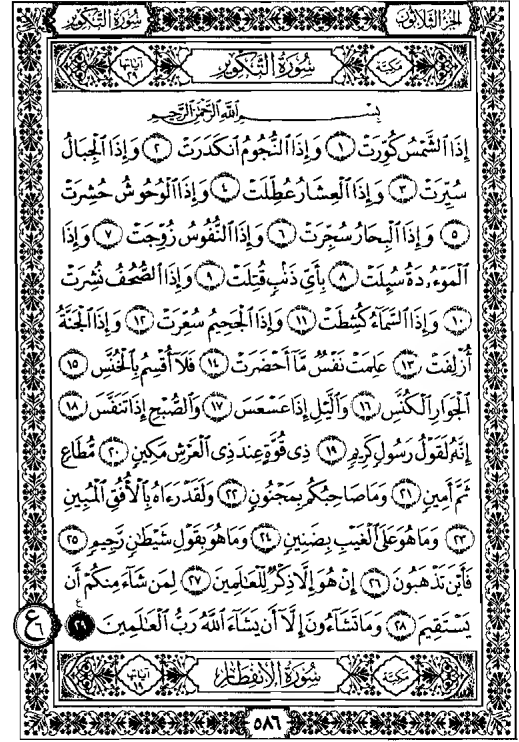 سُورَةُ التَّكْوِيرِ الجُزْءُ الثَّلَاثُونَ
آيَاتُهَا ٢٩ سُورَةُ التَّكْوِيرِ مَكِّيَّة
بِسْمِ ٱللَّهِ ٱلرَّحْمَٰنِ ٱلرَّحِيمِ
إِذَا ٱلشَّمْسُ كُوِّرَتْ ١ وَإِذَا ٱلنُّجُومُ ٱنكَدَرَتْ ٢ وَإِذَا ٱلْجِبَالُ
سُيِّرَتْ ٣ وَإِذَا ٱلْعِشَارُ عُطِّلَتْ ٤ وَإِذَا ٱلْوُحُوشُ حُشِرَتْ
٥ وَإِذَا ٱلْبِحَارُ سُجِّرَتْ ٦ وَإِذَا ٱلنُّفُوسُ زُوِّجَتْ ٧ وَإِذَا
ٱلْمَوْءُۥدَةُ سُئِلَتْ ٨ بِأَيِّ ذَنۢبٍ قُتِلَتْ ٩ وَإِذَا ٱلصُّحُفُ نُشِرَتْ
١٠ وَإِذَا ٱلسَّمَآءُ كُشِطَتْ ١١ وَإِذَا ٱلْجَحِيمُ سُعِّرَتْ ١٢ وَإِذَا ٱلْجَنَّةُ
أُزْلِفَتْ ١٣ عَلِمَتْ نَفْسٌ مَّآ أَحْضَرَتْ ١٤ فَلَآ أُقْسِمُ بِٱلْخُنَّسِ ١٥
ٱلْجَوَارِ ٱلْكُنَّسِ ١٦ وَٱلَّيْلِ إِذَا عَسْعَسَ ١٧ وَٱلصُّبْحِ إِذَا تَنَفَّسَ ١٨
إِنَّهُۥ لَقَوْلُ رَسُولٍ كَرِيمٍ ١٩ ذِى قُوَّةٍ عِندَ ذِى ٱلْعَرْشِ مَكِينٍ ٢٠ مُّطَاعٍ
ثَمَّ أَمِينٍ ٢١ وَمَا صَاحِبُكُم بِمَجْنُونٍ ٢٢ وَلَقَدْ رَءَاهُ بِٱلْأُفُقِ ٱلْمُبِينِ
٢٣ وَمَا هُوَ عَلَى ٱلْغَيْبِ بِضَنِينٍ ٢٤ وَمَا هُوَ بِقَوْلِ شَيْطَٰنٍ رَّجِيمٍ ٢٥
فَأَيْنَ تَذْهَبُونَ ٢٦ إِنْ هُوَ إِلَّا ذِكْرٌ لِّلْعَٰلَمِينَ ٢٧ لِمَن شَآءَ مِنكُمْ أَن
يَسْتَقِيمَ ٢٨ وَمَا تَشَآءُونَ إِلَّآ أَن يَشَآءَ ٱللَّهُ رَبُّ ٱلْعَٰلَمِينَ ٢٩ ع ع ٦
آيَاتُهَا ١٩ سُورَةُ الانفِطَارِ مَكِّيَّة
٥٨٦